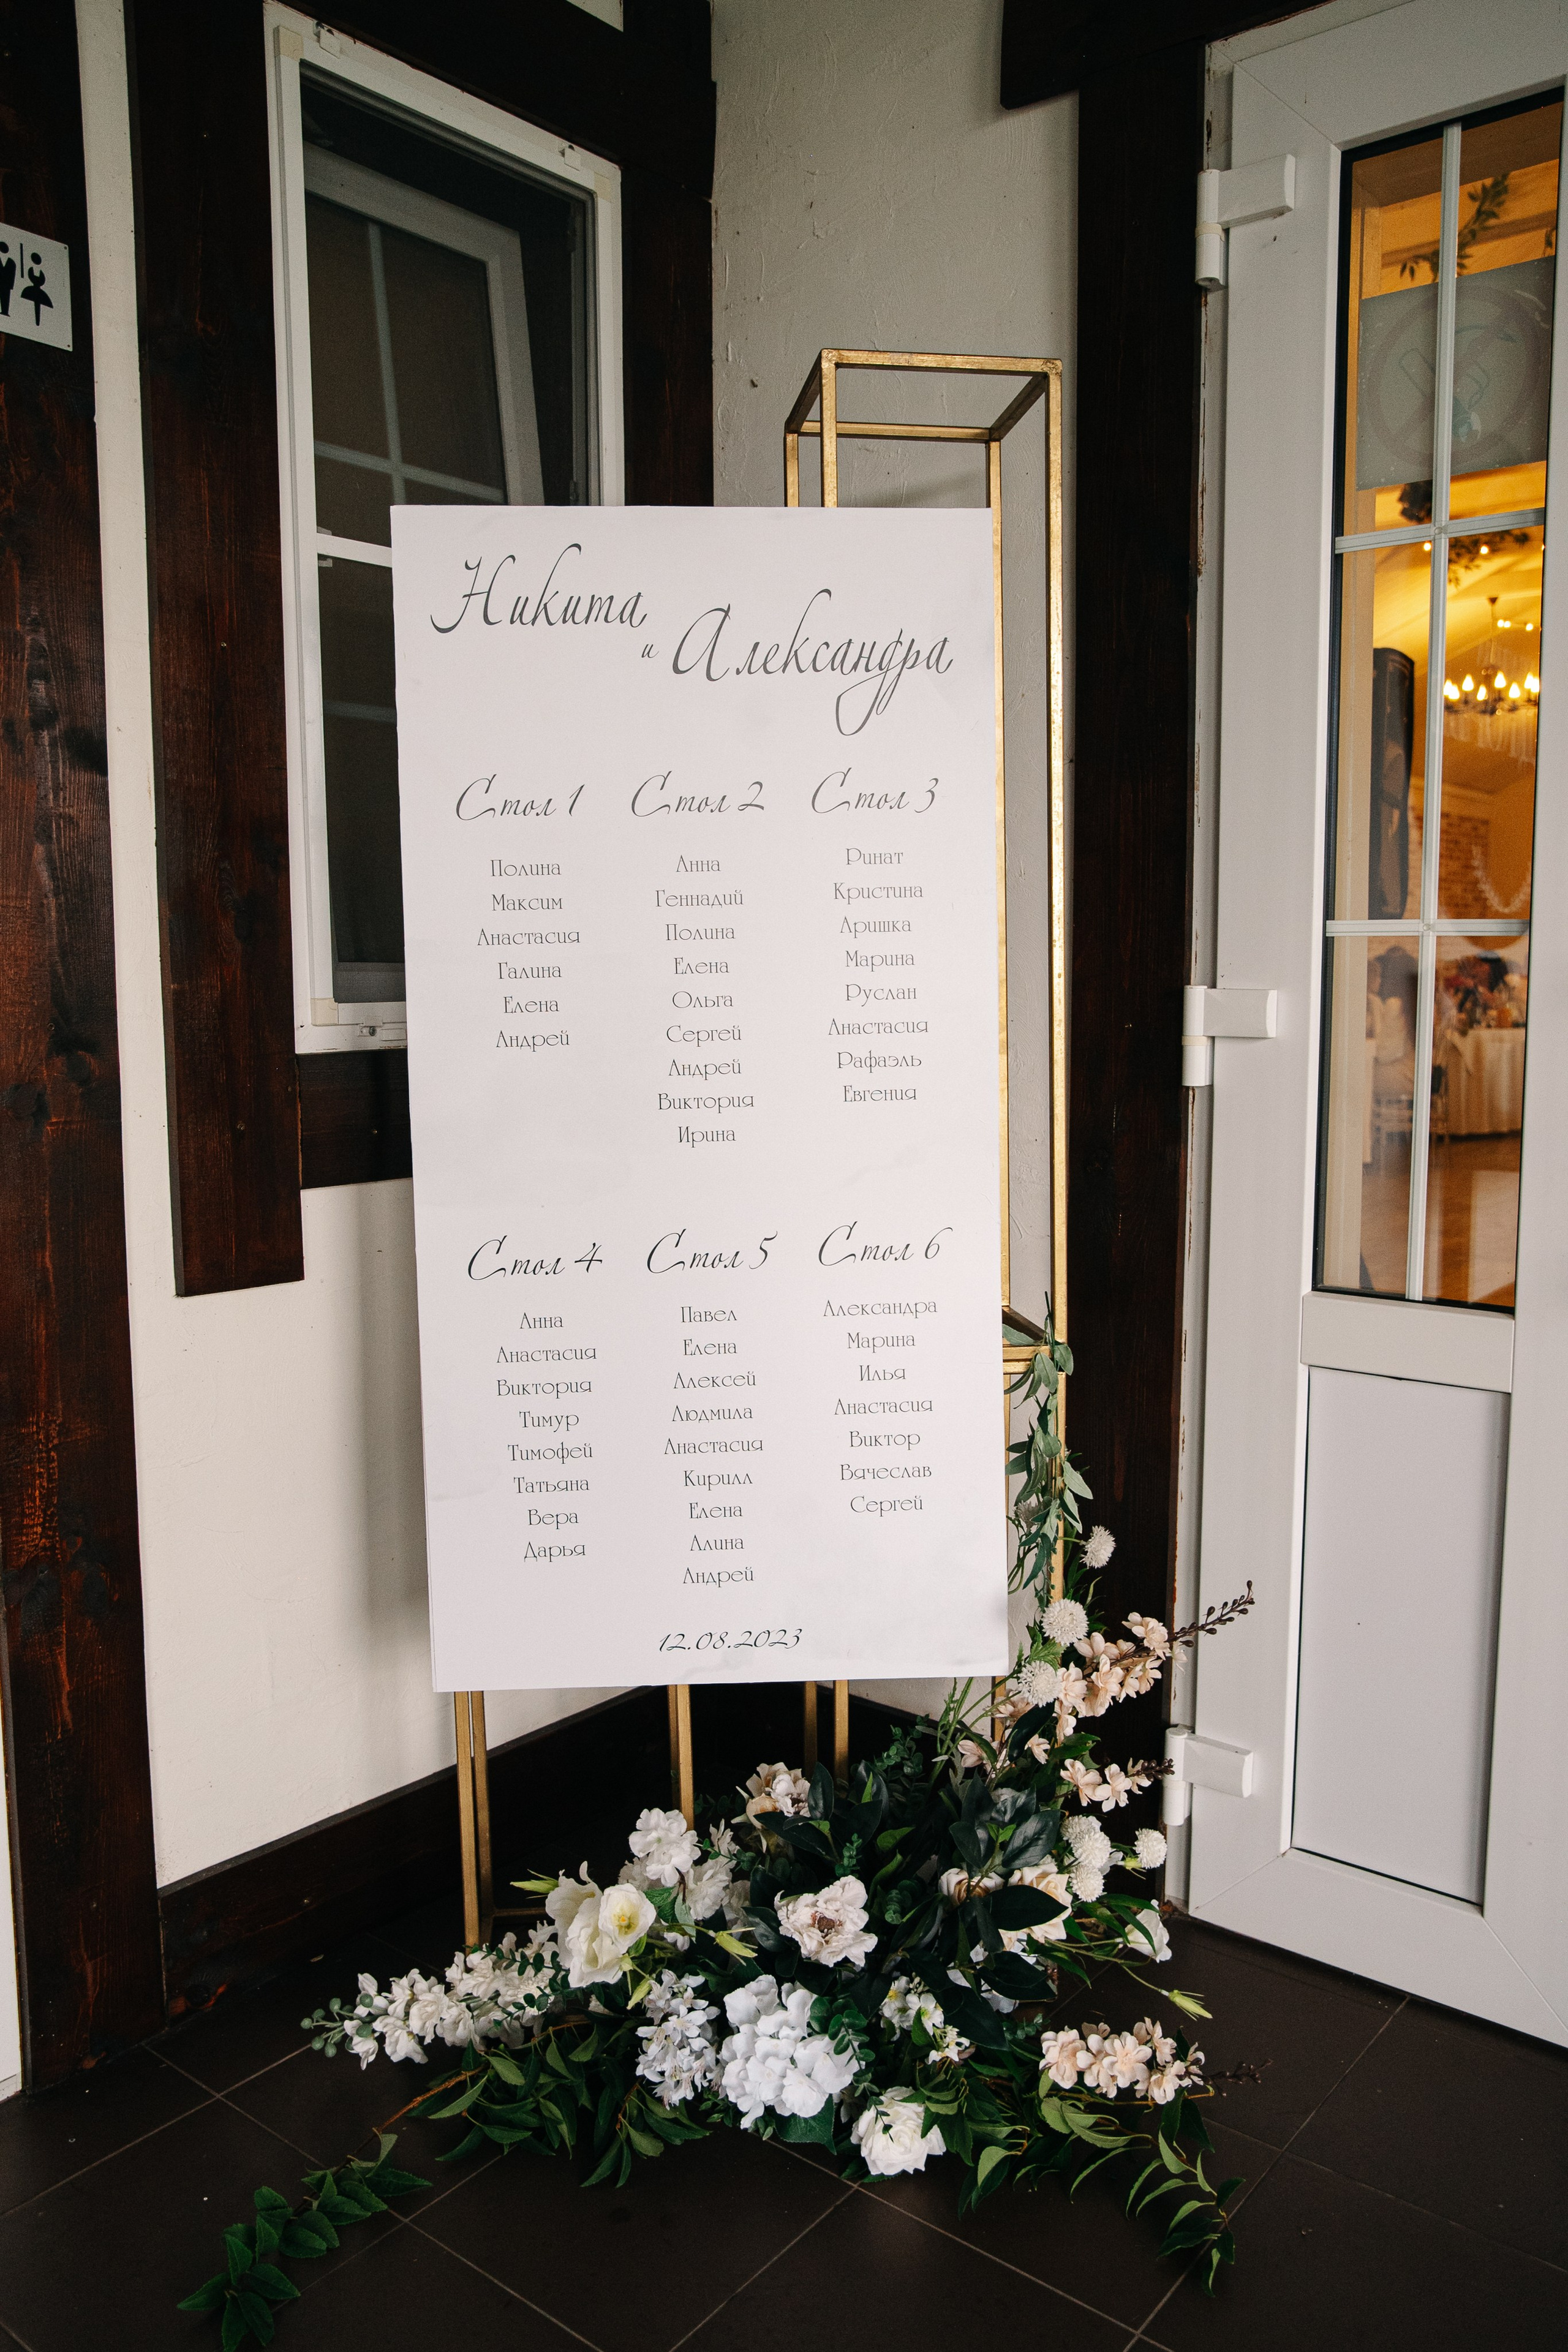 Никита
и Александра
Стол 1
Полина
Максим
Анастасия
Галина
Елена
Андрей
Стол 2
Анна
Геннадий
Полина
Елена
Ольга
Сергей
Андрей
Виктория
Ирина
Стол 3
Ринат
Кристина
Аришка
Марина
Руслан
Анастасия
Рафаэль
Евгения
Стол 4
Анна
Анастасия
Виктория
Тимур
Тимофей
Татьяна
Вера
Дарья
Стол 5
Павел
Елена
Алексей
Людмила
Анастасия
Кирилл
Елена
Алина
Андрей
Стол 6
Александра
Марина
Илья
Анастасия
Виктор
Вячеслав
Сергей
12.08.2023